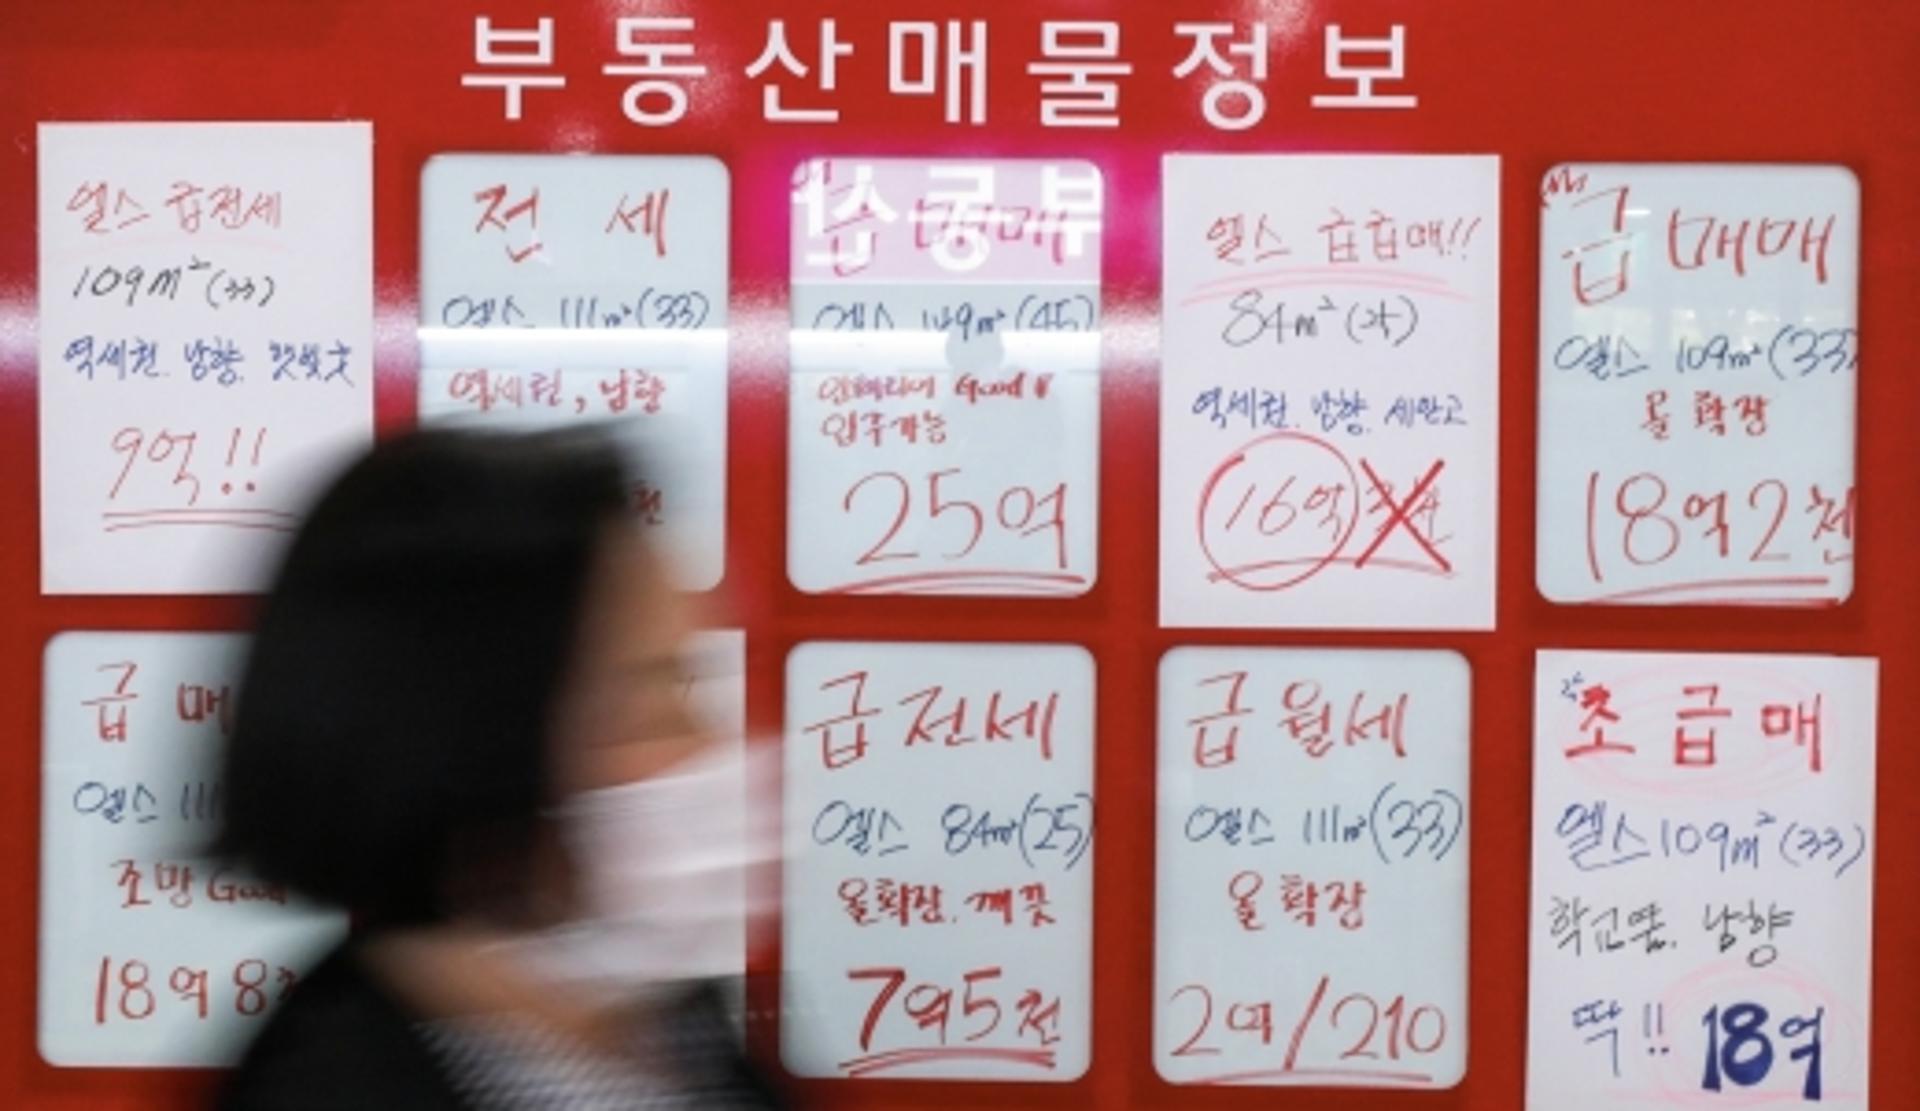 부동산매물정보
엘스 급전세
109m²(33)
역세권. 남향.
9억!!
전 세
엘스 111m²(33)
역세권, 남향
급매매
엘스 149m²(45)
인테리어 Good
입주가능
25억
엘스 급급매!!
84m²(25)
역세권. 남향. 세안고
16억
급매매
엘스 109m²(33)
올 확장
18억2천
급 매
엘스 111
조망 Good
18억 8천
급전세
엘스 84m²(25)
올확장. 깨끗
7억5천
급월세
엘스 111m²(33)
올 확장
2억/210
초 급 매
엘스 109m²(33)
학교옆. 남향
딱!! 18억